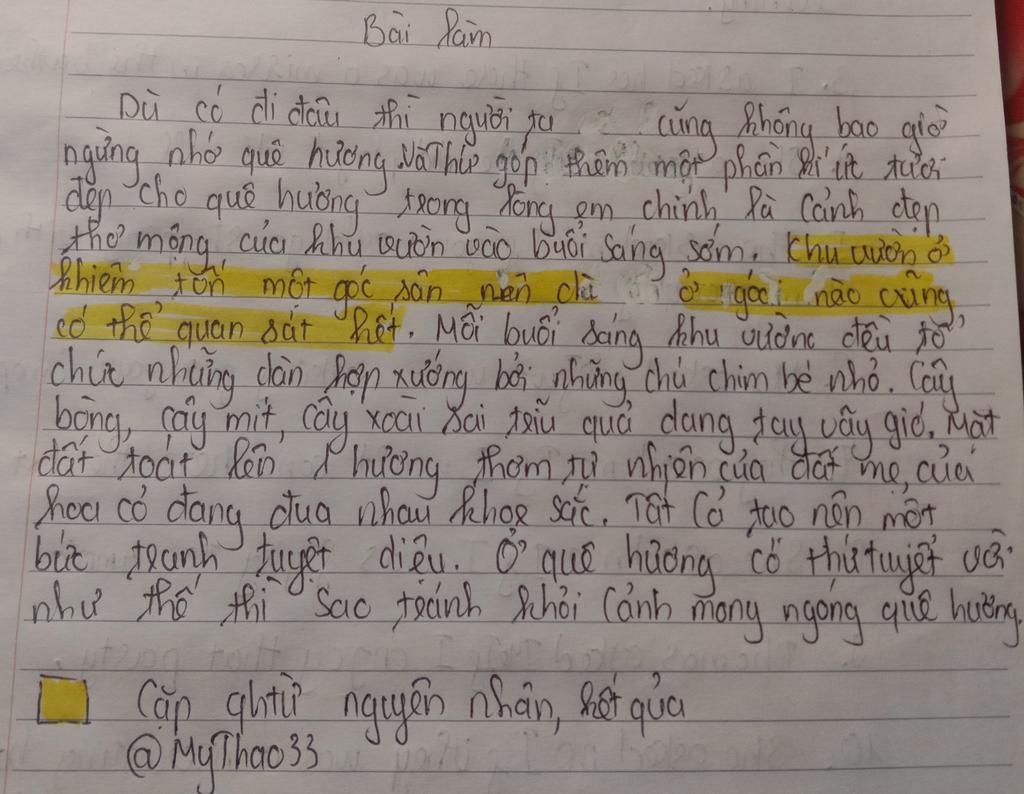 Bài làm
Dù có đi đâu thì người ta cũng không bao giờ
ngừng nhớ quê hương. Và Thứ góp thêm một phần kí ức tươi
đẹp cho quê hương trong lòng em chính là cảnh đẹp
thơ mộng của khu vườn vào buổi sáng sớm. Khu vườn ở
khiêm tốn một góc sân nên chỉ ở góc nào cũng
có thể quan sát hết. Mỗi buổi sáng khu vường đều tổ
chức những dàn hợp xướng bởi những chú chim bé nhỏ. Cây
bòng, cây mít, cây xoài sai trĩu quả dang tay vẫy gió. Mặt
đất toát lên hương thơm tự nhiên của đất mẹ, của
hoa cỏ đang đua nhau khoe sắc. Tất cả tạo nên một
bức tranh tuyệt diệu. Ở quê hương có thứ tuyệt vời
như thế thì sao tránh khỏi cảnh mong ngóng quê hương.
Cặp qhtừ nguyên nhân, kết qủa
@MyThao33